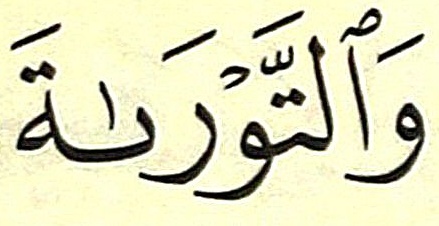 وَٱلتَّوْرَىٰةَ